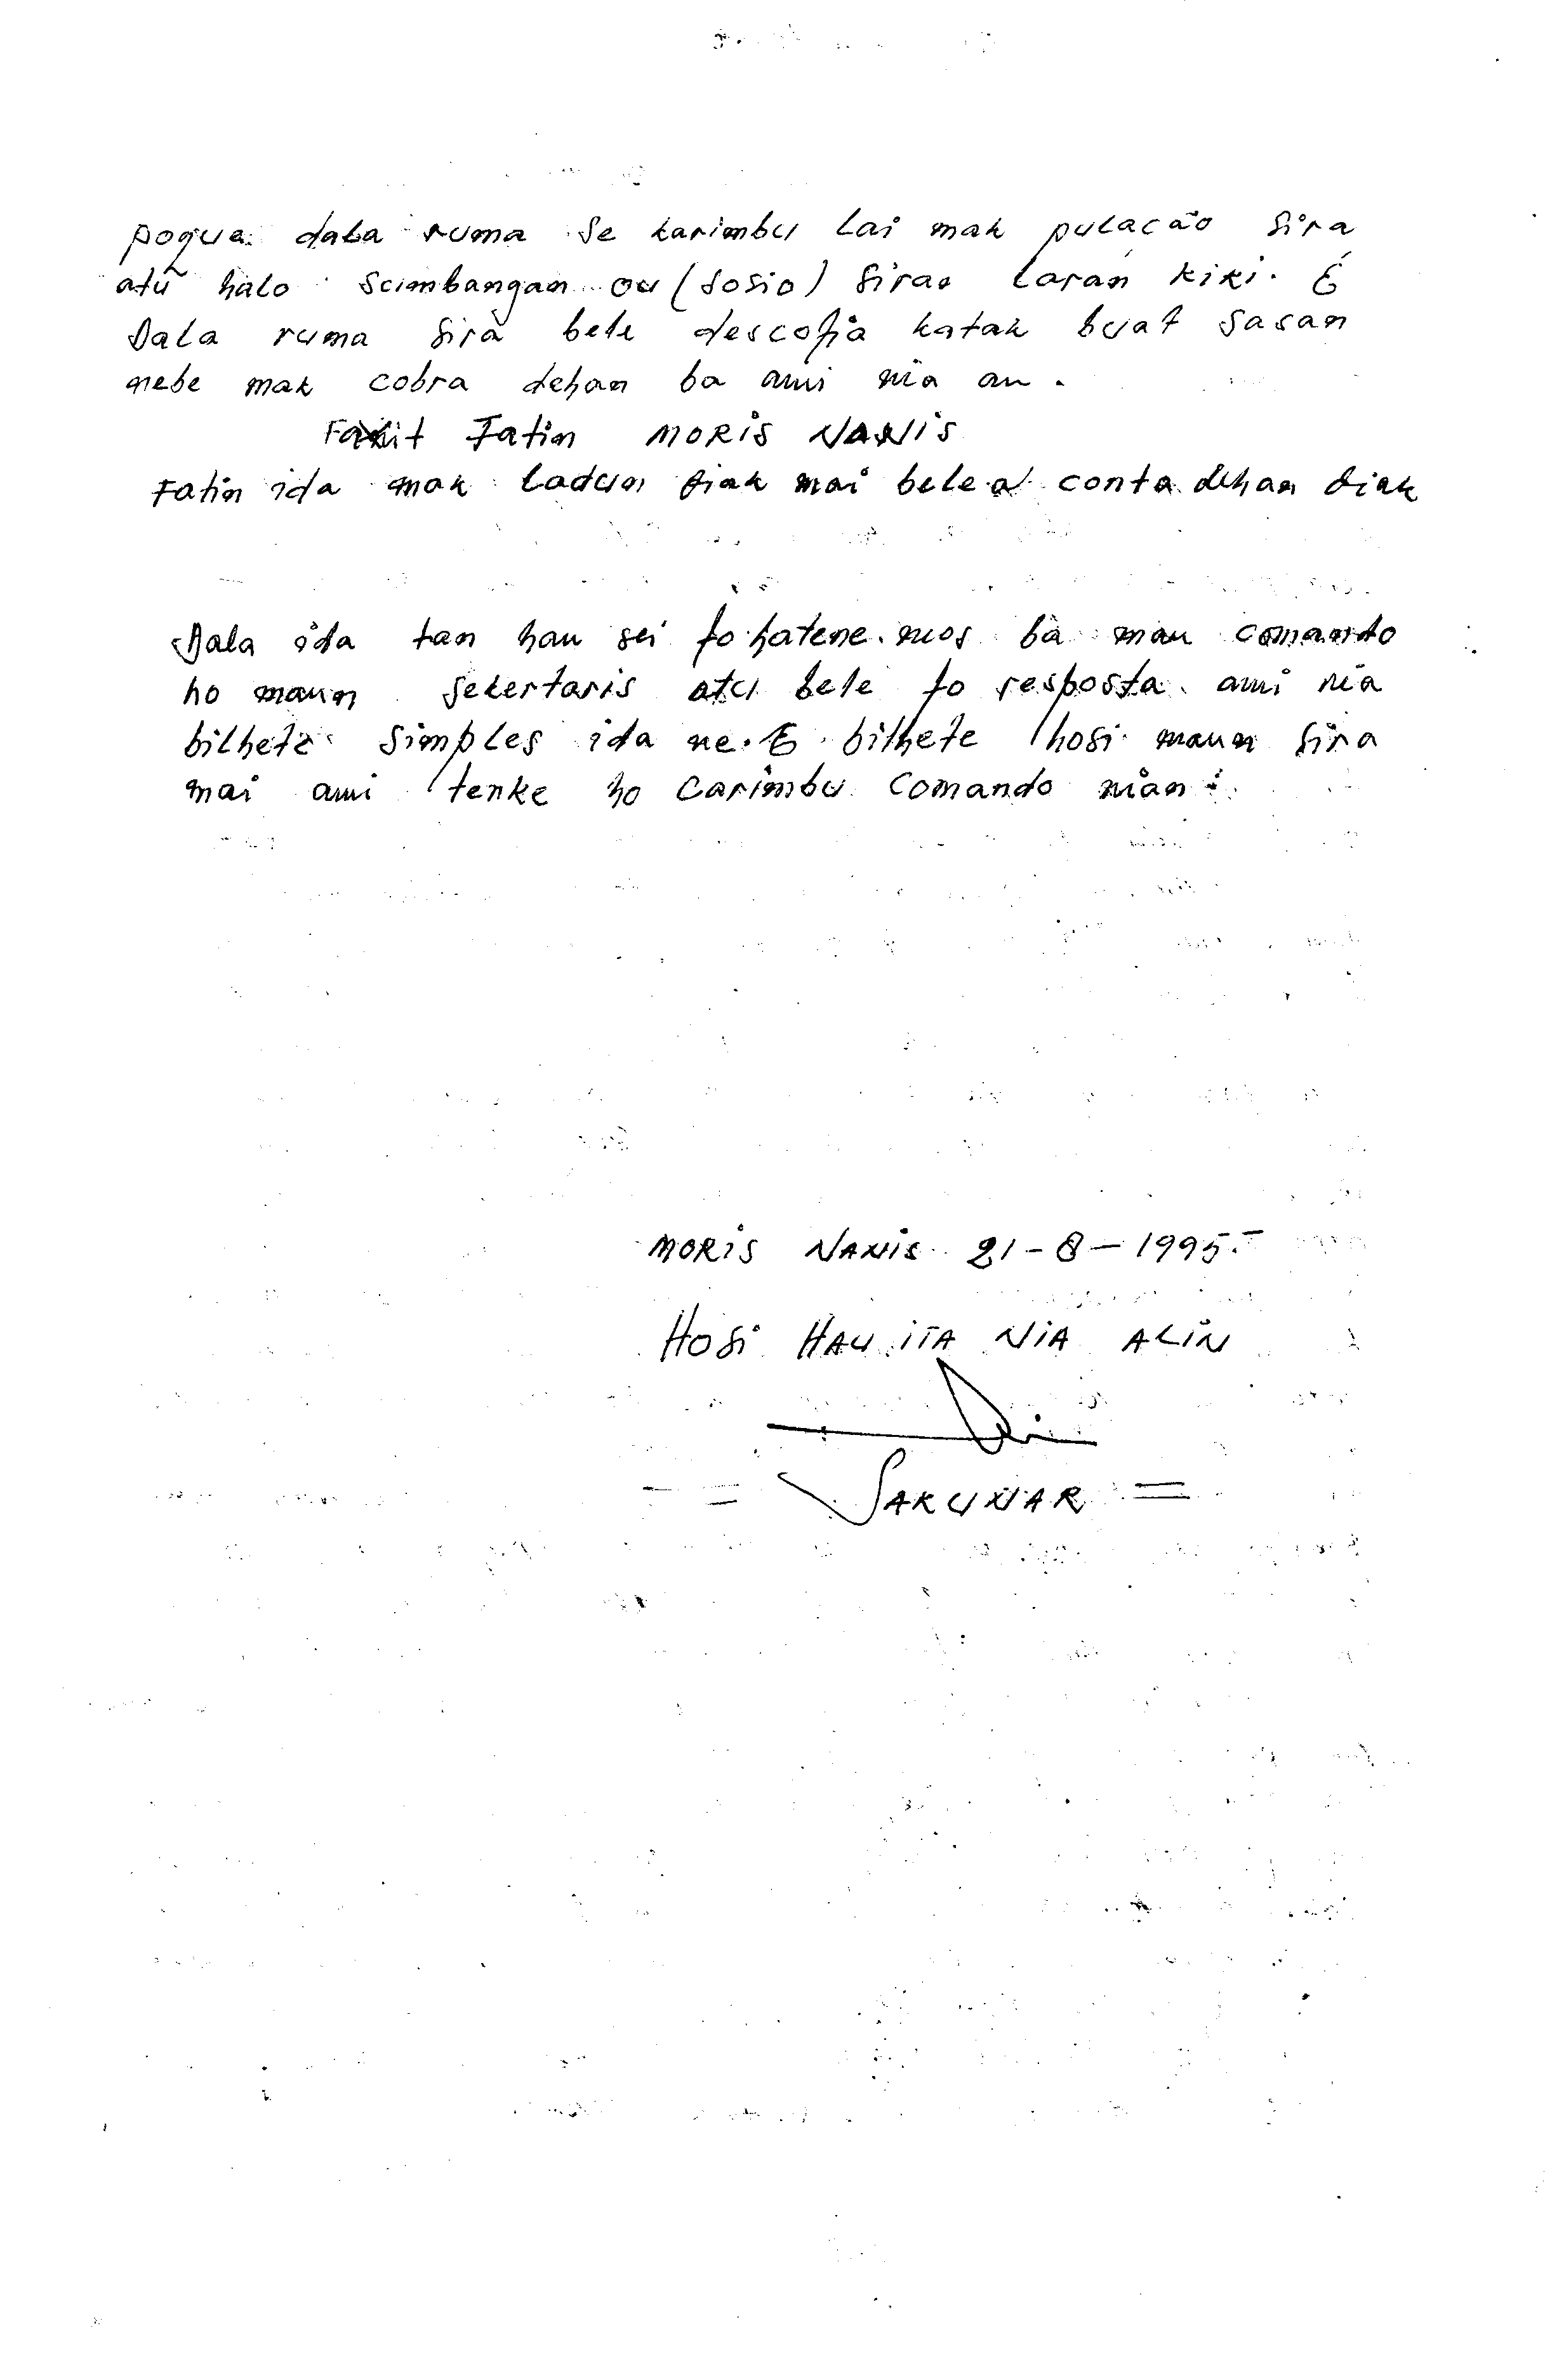 poqua daba ruma se karimbu lai mak pulacão sira
atu halo sumbangan ou (sosio) sirae laran kiki. É
Dala ruma sira bele descofia katak buat sasan
nebe mak cobra dehan ba ami nia an.
Fatin MORIS NANIS
Fatin ida mak ladun diak mai bele a conta dehan diak
Dala ida tan hau sei fo hatene mos ba mau comando
ho maun sekertaris atu bele fo resposta ami nia
bilhete simples ida ne. E bilhete hosi maun sira
mai ami tenke ho carimbu comando nian.
MORIS NANIS 21-8-1995.-
HOSI HAU ITA NIA ALIN
= SAKUNAR =